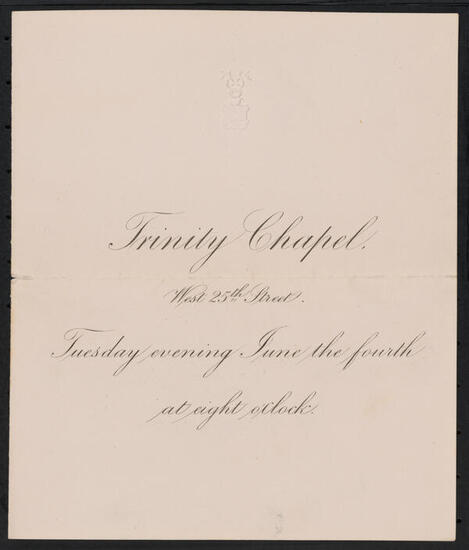 Trinity Chapel.
West 25th Street.
Tuesday evening June the fourth
at eight o'clock.